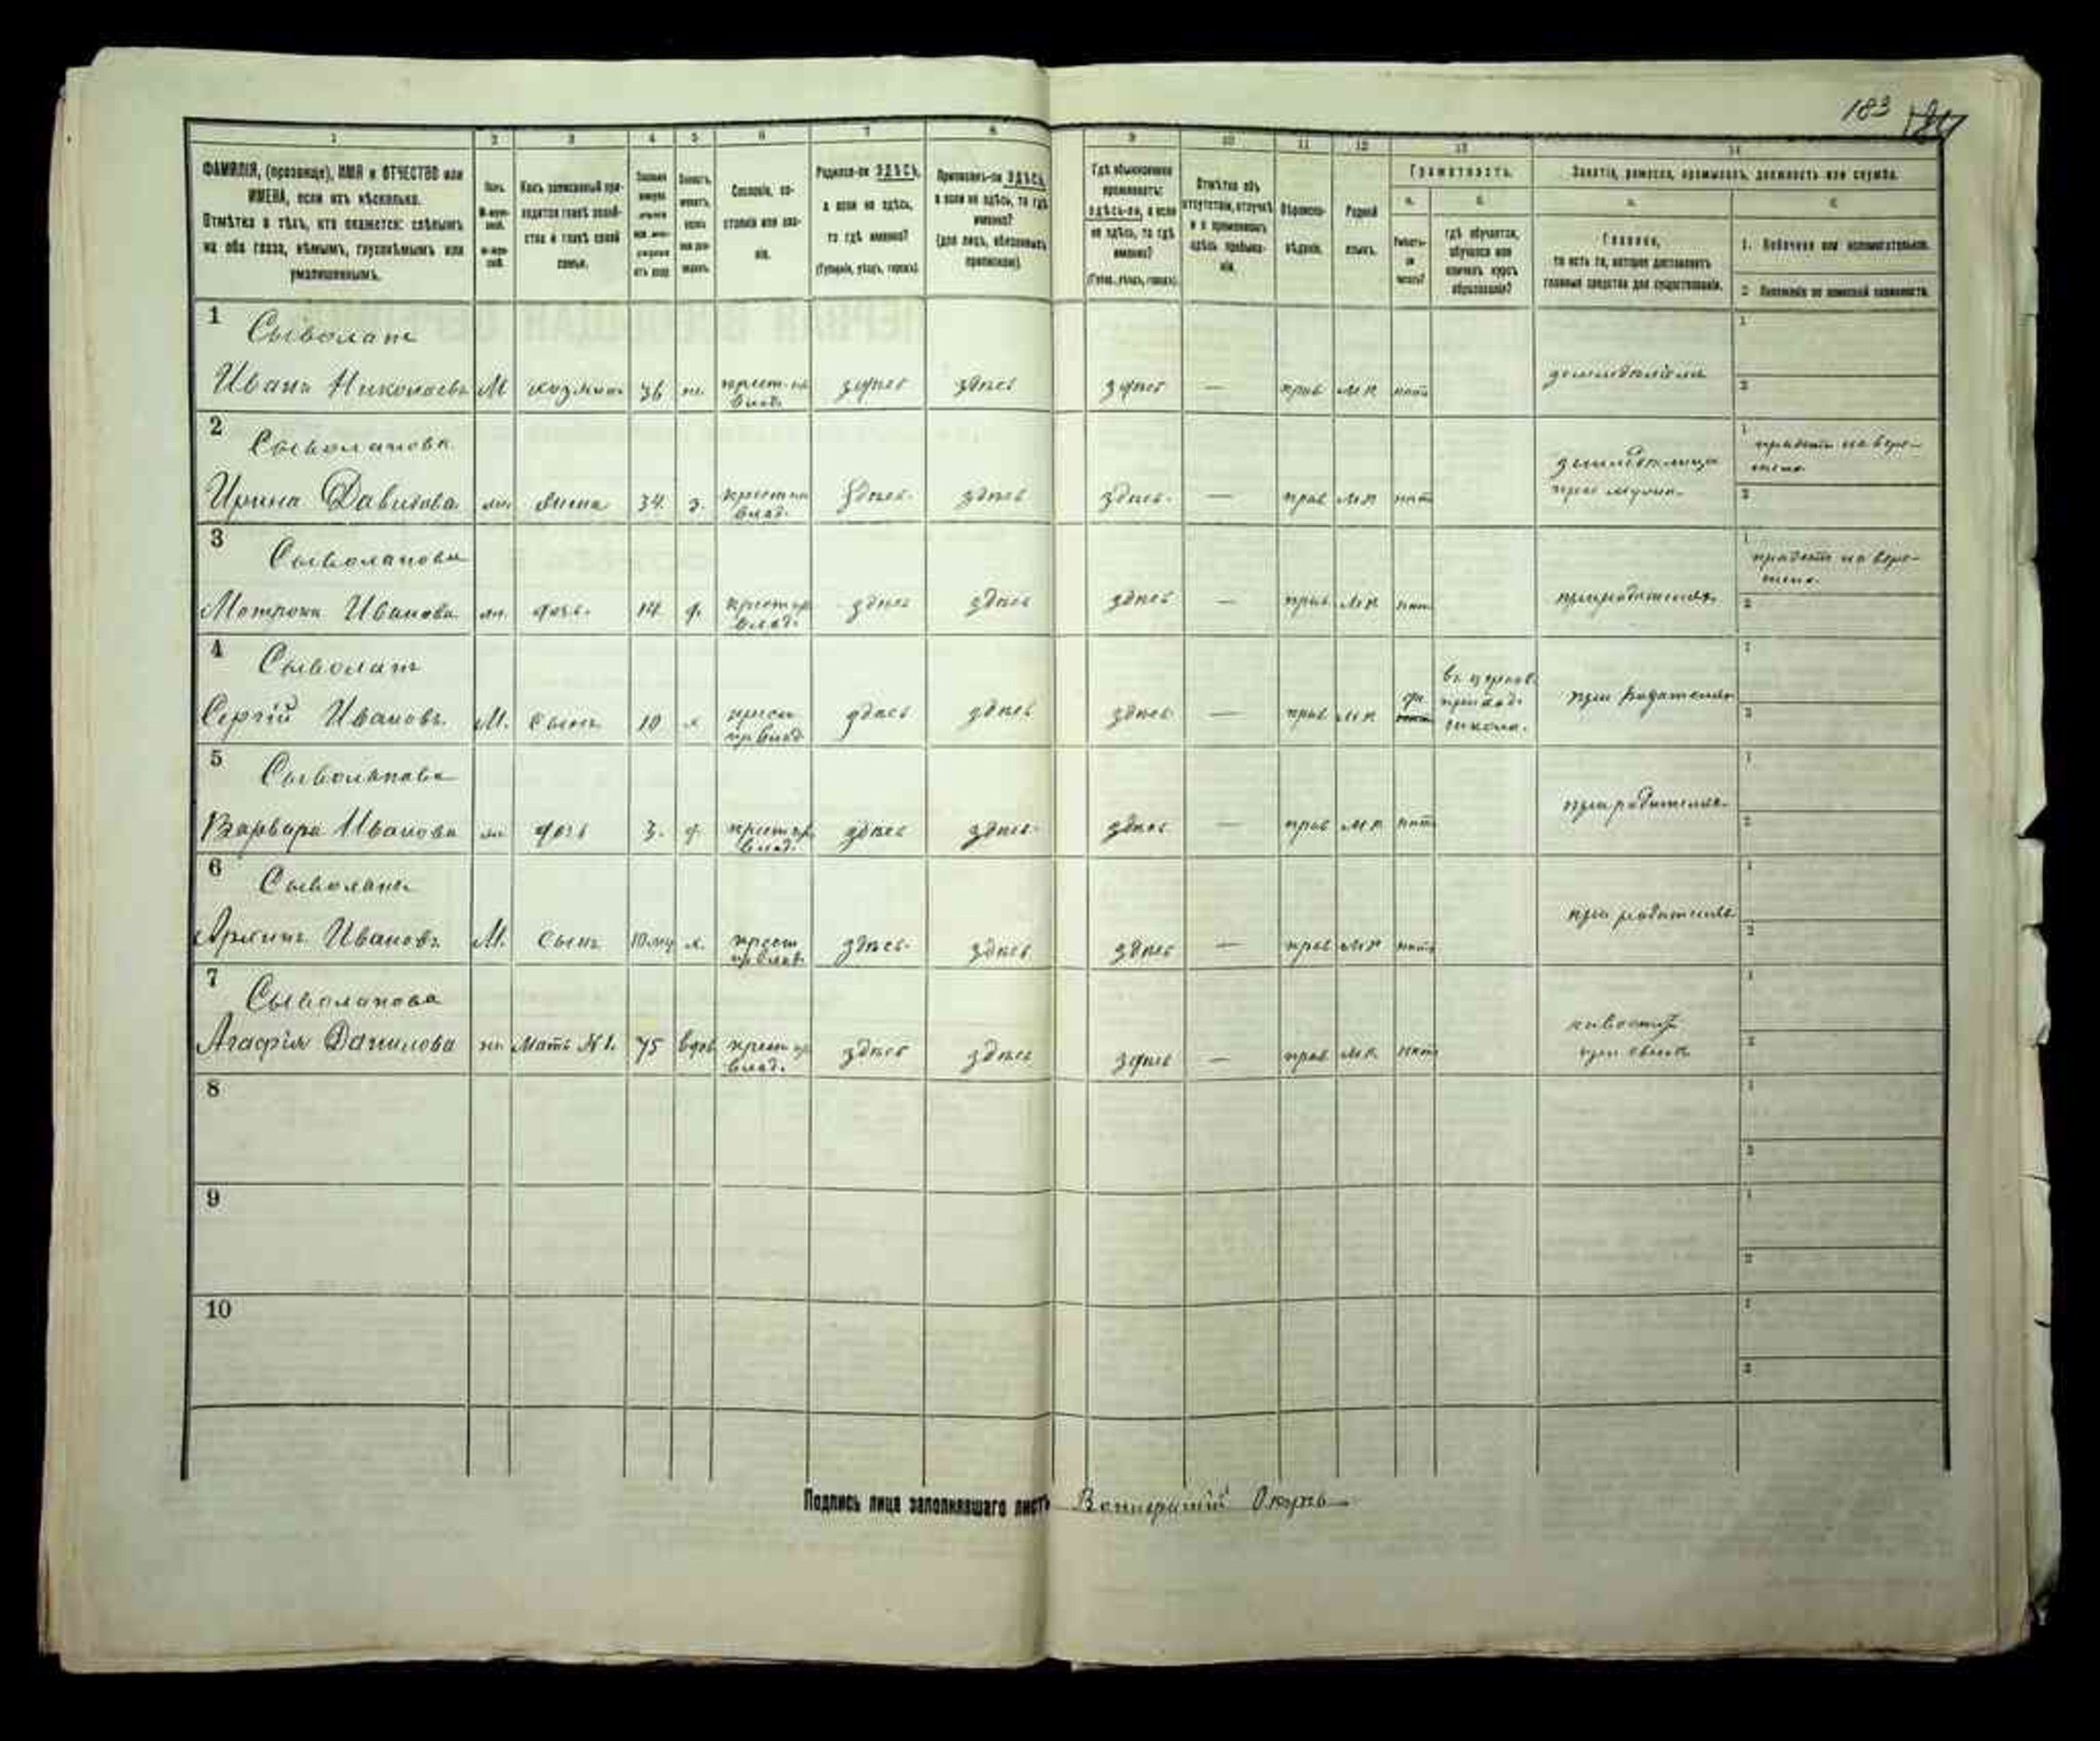 183 184
1 2 3 4 5 6 7 8 9 10 11 12 13 14
ФАМИЛІЯ, (прозвище), ИМЯ и ОТЧЕСТВО или
ИМЕНА, если ихъ нѣсколько.
Отмѣтка о тѣхъ, кто окажется: слѣпымъ
на оба глаза, нѣмымъ, глухонѣмымъ или
умалишеннымъ.
Полъ.
Какъ записанный при-
ходится главѣ хозяй-
ства и главѣ своей
семьи.
Сословіе, со-
стояніе или зва-
ніе.
Родился-ли ЗДѢСЬ,
а если не здѣсь,
то гдѣ именно?
(Губернія, уѣздъ, городъ).
Приписанъ-ли ЗДѢСЬ,
а если не здѣсь, то гдѣ
именно?
(для лицъ, обязанныхъ
припискою).
Гдѣ обыкновенно
проживаетъ:
здѣсь-ли, а если
не здѣсь, то гдѣ
именно?
(Губер., уѣздъ, городъ).
Отмѣтка объ
отсутствіи, отлучкѣ
и о временномъ
здѣсь пребыва-
ніи.
Вѣроиспо-
вѣданіе.
Родной
языкъ.
Грамотность.
а. б.
Умѣетъ-
ли
читать?
гдѣ обучается,
обучался или
кончилъ курсъ
образованія?
Занятіе, ремесло, промыселъ, должность или служба.
а. б.
Главное,
то есть то, которое доставляетъ
главныя средства для существованія.
1. Побочное или вспомогательное.
2. Положеніе по воинской повинности.
1 Сыволапъ
Иванъ Николаевъ М хозяинъ 36 ж. крест. пр. здѣсь здѣсь здѣсь — прав М Р нѣтъ
влад.
2 Сыволапова
Ирина Давидова жен жена 34 з. здѣсь здѣсь здѣсь — прав М Р нѣтъ
влад.
при мужѣ
прядетъ на вере-
тенѣ
3 Сыволапова
Матрона Иванова жн. дочь 14 д. крест пр здѣсь здѣсь здѣсь — прав. М Р нѣтъ при родителяхъ
влад.
прядетъ на вере-
тенѣ
4 Сыволапъ
Сергій Ивановъ М. сынъ 10 х крест здѣсь здѣсь здѣсь — прав М Р
пр влад
въ церков.
приход.
школѣ.
при родителях
5 Сыволапова
Варвара Иванова жн дочь 3. д. крест пр здѣсь здѣсь здѣсь — прав М Р нѣтъ при родителях
влад.
6 Сыволапъ
Ивановъ М. сынъ х. крест здѣсь здѣсь здѣсь — прав М Р нѣтъ при родителях
пр влад
7 Сыволапова
Агафія Данилова жн Мать №1. 75 вдов крест пр здѣсь здѣсь здѣсь — прав М Р нѣтъ
влад.
при сынѣ
8
9
10
Подпись лица заполнявшаго листъ